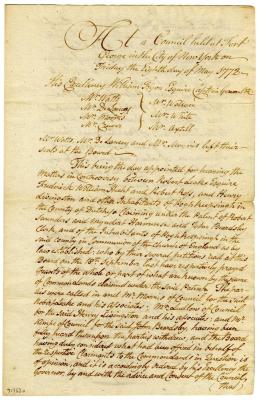 At a Council held at Fort
George in the City of New York on
Friday the Eighth day of May 1772
His Excellency William Tryon Esquire Captain General &c
Mr Watts
Mr De Lancey
Mr Morris
Mr Cruger
Mr Wallace
Mr White
Mr Axtell
Mr Watts Mr De Lancey and Mr Morris left their
seats at the Board
This being the day appointed for hearing the
Matters in Controversy between Robert Leake Esquire
Frederick William and Robert and Henry
Livingston and other Inhabitants of Poghkeepsingh in the
County of Dutchess claiming under the Patent of Robert
Saunders and Myndert Harmense and John Beardsley
Clerk, and of the Inhabitants of Poghkeepsingh in the
said County in Communion of the Church of England as by
Law established: who by their several petitions had at this
Board on the have respectively prayed
Grants of the whole or part of what are known by the name
of Commonlands claimed under the said Patent. The parties
were called in and Mr Morris of Council for the said
Robert Leake and his Associates; Mr Ludlow of Council
for the said Henry Livingston and his associates; and Mr
Kempe of Council for the said John Beardsley, having been
fully heard thereupon the parties withdrew, and this Board
having duly considered what had been offered in behalf of
the respective Claimants to the Commonlands in Question is
of opinion, and it is accordingly Ordered by his Excellency the
Governor, by and with the advice and Consent of the Council,
That